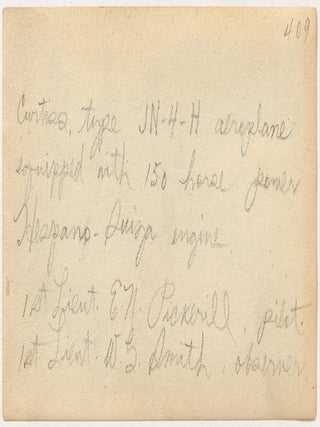 409
Curtiss, type JN-4-H aeroplane
equipped with 150 horse power
Hespano-Suiza engine.
1st Lieut. E. N. Pickerill, pilot.
1st Lieut. W. L. Smith, observer.